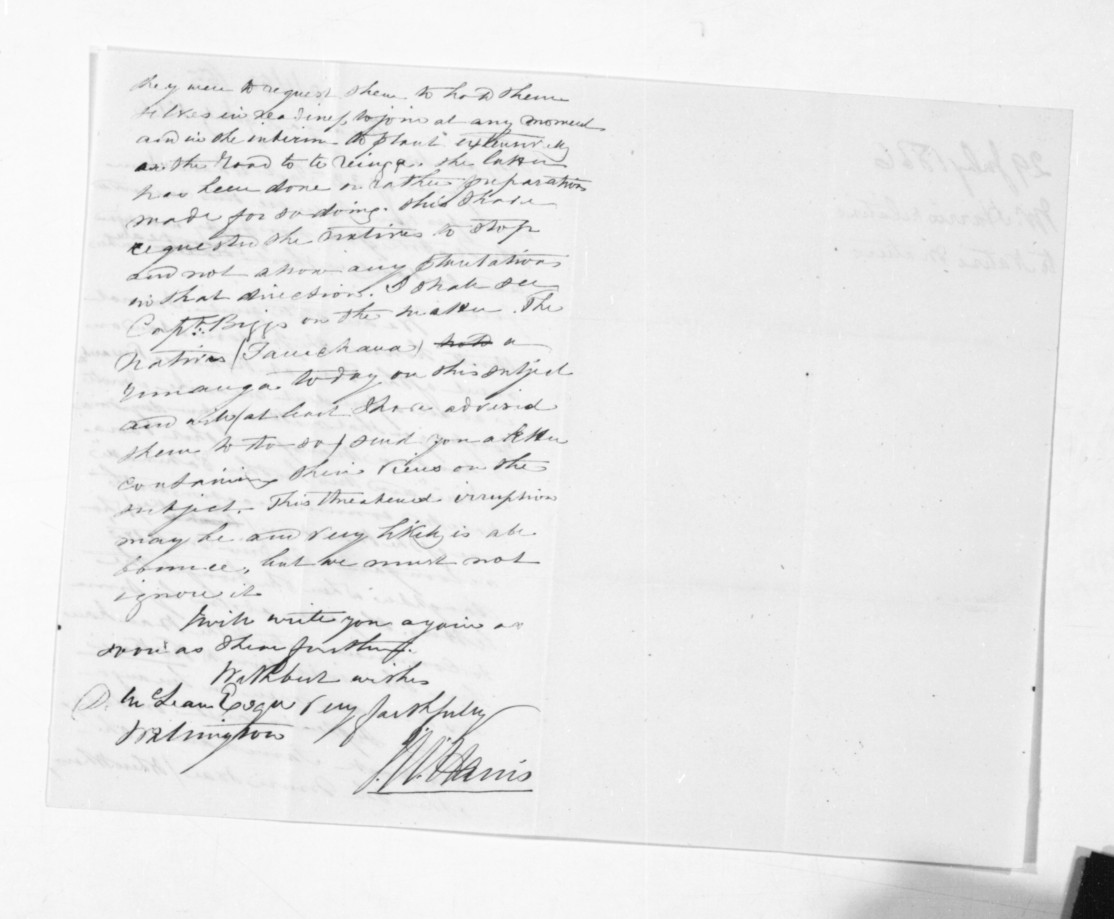 they were to request them to hold them
selves in readiness to join at any moment
and in the interim to plant extensively
on the road to te Reinga. the latter
has been done or rather preparations
made for so doing. this I have
requested the natives to stop
and not allow any plantations
in that direction. I shall see
Capt. Biggs on the matter. The
Natives (                ) a
Runanga today on this subject
and will (at least I have advised
them to to so) send you a letter
containing their views on the
subject. This threatened irruption
may be and very likely is all
bounce, but we must not
ignore it
I will write you again as
soon as I hear further.
With best wishes
D. McLean Esqre Very faithfully
Wellington
J. W. Harris
29 July 1866